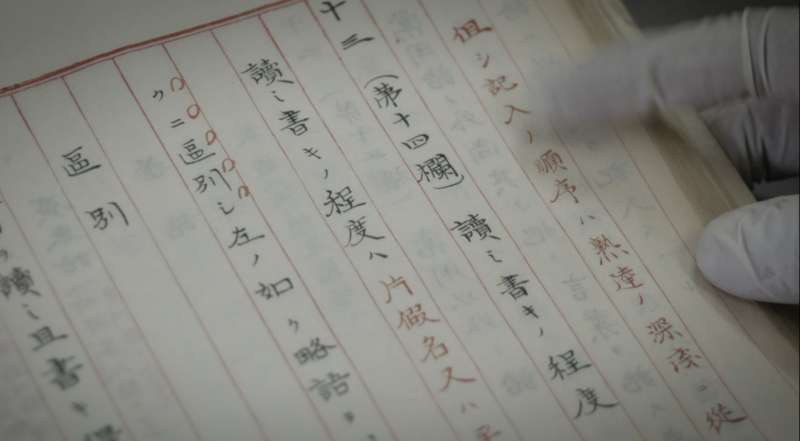 但シ記入ノ順序ハ熟達ノ深淺ニ從
十三 (第十四欄) 讀ミ書キノ程度
讀ミ書キノ程度ハ片假名又ハ
ニ區別シ左ノ如ク略語ヲ
區別
讀ミ且書キ得